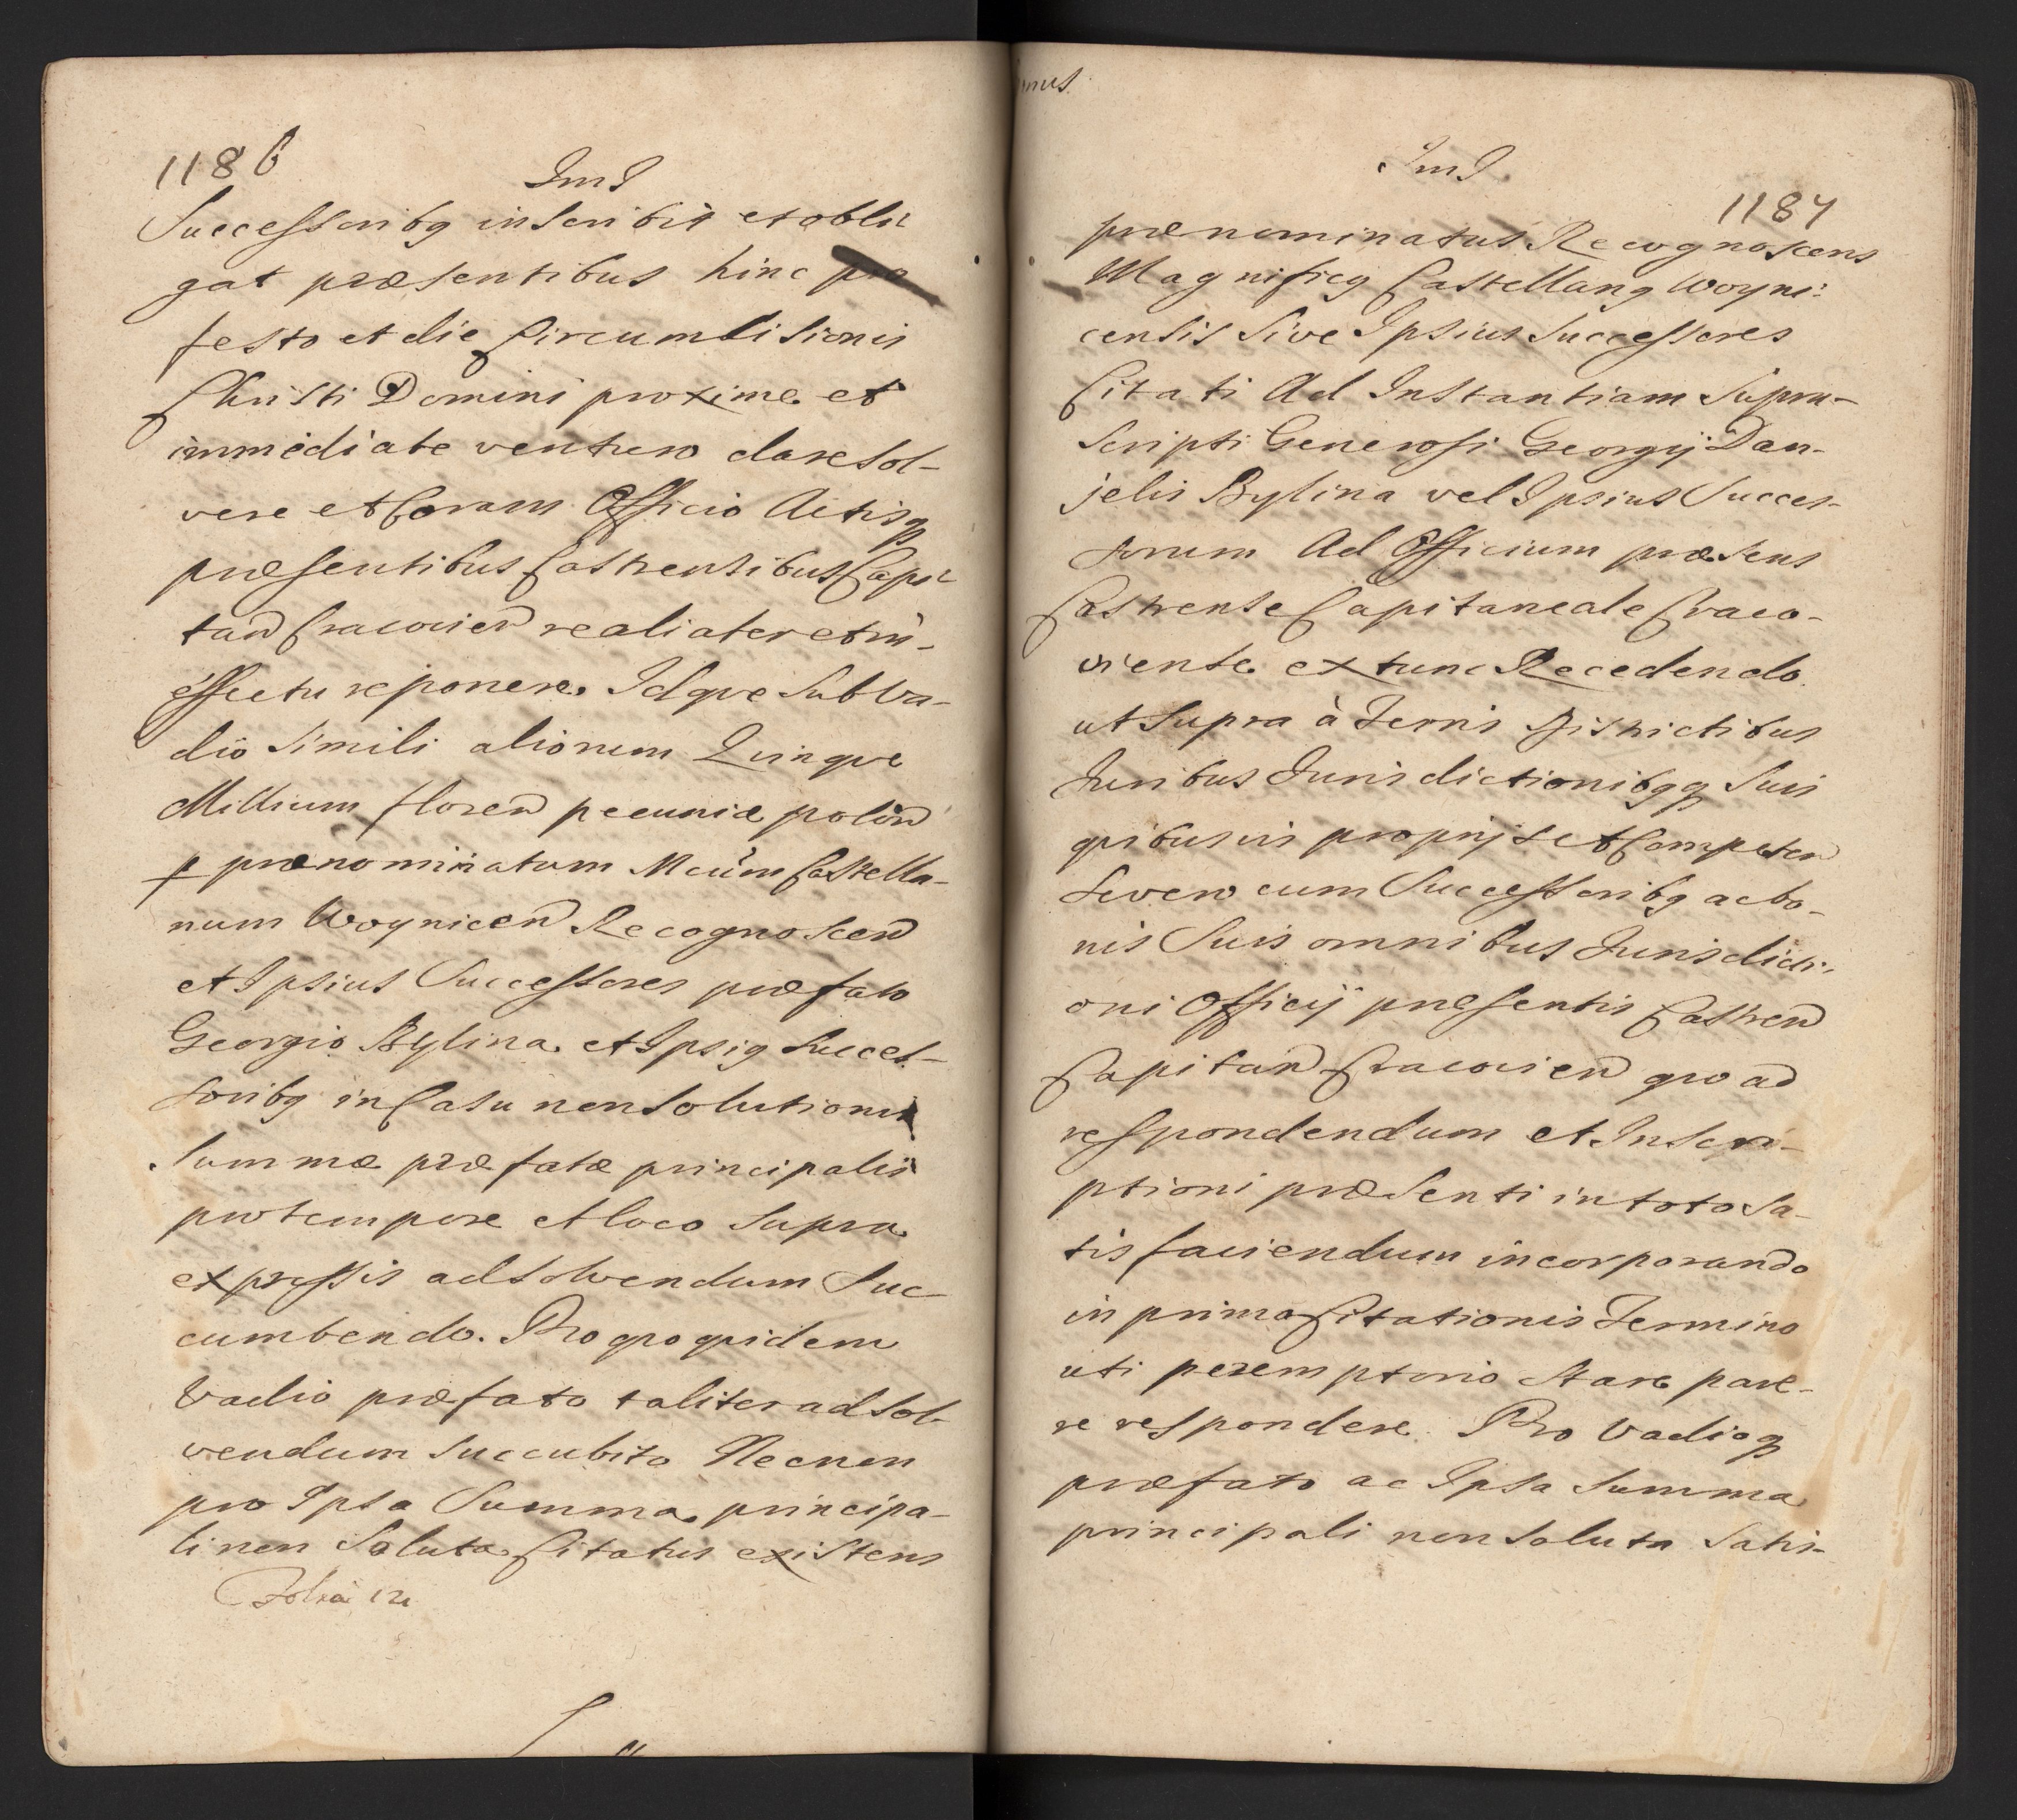 1186
JmJ
Successoribq inscribit et obli
gat præsentibus hinc pro
festo et die Circumcisionis
Christi Domini proxime et
immediate venturo dare sol-
vere et Coram Officio Actisq
præsentibus Castrensibus Capi
tan Cracovien realiater et in-
effectu reponere. Idque sub va-
dio simili aliorum Quinque
Millium floren pecuniæ polon
p prænominatum Mcum Castella-
num Woynicen Recognoscen
et Ipsius Successores præfato
Georgio Bylina et Ipsiq succes-
soribq in Casu non solutionis
summæ præfatæ principalis
pro tempore et loco supra
expressis adsolvendum suc
cumbendo. Pro quo quidem
Vadio præfato taliter ad sol-
vendum succubito Necnon
pro Ipsa Summa principa-
li non soluta Citatus existens
JmJ.
1187
prænominatus Recognoscens
Magnificq Castellanq Woyni:
censis sive Ipsius Successores
Citati Ad Instantiam supra-
scripti Generosi Georgij Dan-
jelis Bylina vel Ipsius Succes-
sorum Ad Officium præsens
Castrense Capitaneale Craco-
viense ex tunc Recedendo
ut supra à Terris Districtibus
Juribus Jurisdictionibqq suis
quibusvis proprijs et Competen
se vero cum Successoribq ac bo-
nis Suis omnibus Jurisdicti-
oni Officij præsentis Castren
Capitan Cracovien quoad
respondendum et Inscri-
ptioni præsenti in toto sa-
tisfaciendum incorporando
in primo Citationis Termino
uti peremptorio stare pare-
re respondere. Pro Vadioq
præfato ac Ipsa summa
principali non soluta satis-